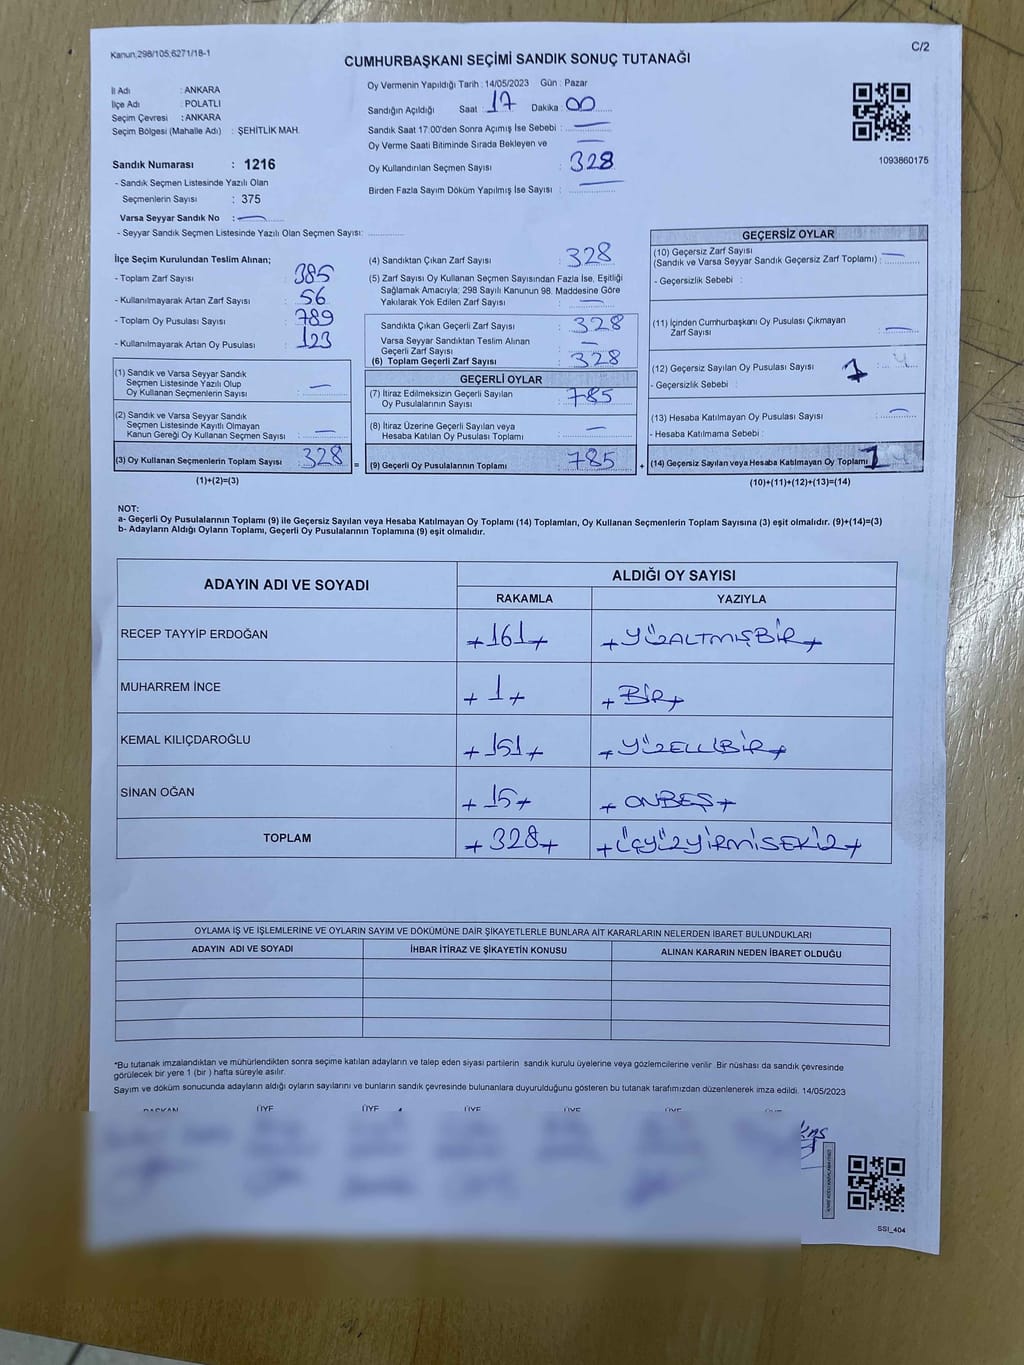 Kanun:298/105,6271/18-1
C/2
CUMHURBAŞKANI SEÇİMİ SANDIK SONUÇ TUTANAĞI
İl Adı : ANKARA
İlçe Adı : POLATLI
Seçim Çevresi : ANKARA
Seçim Bölgesi (Mahalle Adı) : ŞEHİTLİK MAH.
Sandık Numarası : 1216
- Sandık Seçmen Listesinde Yazılı Olan
Seçmenlerin Sayısı : 375
Varsa Seyyar Sandık No :
- Seyyar Sandık Seçmen Listesinde Yazılı Olan Seçmen Sayısı:
Oy Vermenin Yapıldığı Tarih : 14/05/2023 Gün : Pazar
Sandığın Açıldığı Saat : 17 Dakika : 00
Sandık Saat 17:00'den Sonra Açımış İse Sebebi :
Oy Verme Saati Bitiminde Sırada Bekleyen ve
Oy Kullandırılan Seçmen Sayısı : 328
Birden Fazla Sayım Döküm Yapılmış İse Sayısı :
1093860175
İlçe Seçim Kurulundan Teslim Alınan;
- Toplam Zarf Sayısı : 385
- Kullanılmayarak Artan Zarf Sayısı : 56
- Toplam Oy Pusulası Sayısı : 789
- Kullanılmayarak Artan Oy Pusulası : 123
(1) Sandık ve Varsa Seyyar Sandık
Seçmen Listesinde Yazılı Olup
Oy Kullanan Seçmenlerin Sayısı : —
(2) Sandık ve Varsa Seyyar Sandık
Seçmen Listesinde Kayıtlı Olmayan
Kanun Gereği Oy Kullanan Seçmen Sayısı : —
(3) Oy Kullanan Seçmenlerin Toplam Sayısı : 328
(1)+(2)=(3)
=
(4) Sandıktan Çıkan Zarf Sayısı : 328
(5) Zarf Sayısı Oy Kullanan Seçmen Sayısından Fazla İse, Eşitliği
Sağlamak Amacıyla; 298 Sayılı Kanunun 98. Maddesine Göre
Yakılarak Yok Edilen Zarf Sayısı : —
Sandıkta Çıkan Geçerli Zarf Sayısı : 328
Varsa Seyyar Sandıktan Teslim Alınan
Geçerli Zarf Sayısı : —
(6) Toplam Geçerli Zarf Sayısı : 328
GEÇERLİ OYLAR
(7) İtiraz Edilmeksizin Geçerli Sayılan
Oy Pusulalarının Sayısı : 785
(8) İtiraz Üzerine Geçerli Sayılan veya
Hesaba Katılan Oy Pusulası Toplamı : —
(9) Geçerli Oy Pusulalarının Toplamı : 785
+
GEÇERSİZ OYLAR
(10) Geçersiz Zarf Sayısı
(Sandık ve Varsa Seyyar Sandık Geçersiz Zarf Toplamı) : —
- Geçersizlik Sebebi :
(11) İçinden Cumhurbaşkanı Oy Pusulası Çıkmayan
Zarf Sayısı : —
(12) Geçersiz Sayılan Oy Pusulası Sayısı :
- Geçersizlik Sebebi :
(13) Hesaba Katılmayan Oy Pusulası Sayısı : —
- Hesaba Katılmama Sebebi :
(14) Geçersiz Sayılan veya Hesaba Katılmayan Oy Toplamı
(10)+(11)+(12)+(13)=(14)
NOT:
a- Geçerli Oy Pusulalarının Toplamı (9) ile Geçersiz Sayılan veya Hesaba Katılmayan Oy Toplamı (14) Toplamları, Oy Kullanan Seçmenlerin Toplam Sayısına (3) eşit olmalıdır. (9)+(14)=(3)
b- Adayların Aldığı Oyların Toplamı, Geçerli Oy Pusulalarının Toplamına (9) eşit olmalıdır.
ADAYIN ADI VE SOYADI
ALDIĞI OY SAYISI
RAKAMLA YAZIYLA
RECEP TAYYİP ERDOĞAN +161+ +YÜZALTMIŞBİR+
MUHARREM İNCE +1+ +BİR+
KEMAL KILIÇDAROĞLU +151+ +YÜZELLİBİR+
SİNAN OĞAN +15+ +ONBEŞ+
TOPLAM +328+ +ÜÇYÜZYİRMİSEKİZ+
OYLAMA İŞ VE İŞLEMLERİNE VE OYLARIN SAYIM VE DÖKÜMÜNE DAİR ŞİKAYETLERLE BUNLARA AİT KARARLARIN NELERDEN İBARET BULUNDUKLARI
ADAYIN ADI VE SOYADI İHBAR İTİRAZ VE ŞİKAYETİN KONUSU ALINAN KARARIN NEDEN İBARET OLDUĞU
*Bu tutanak imzalandıktan ve mühürlendikten sonra seçime katılan adayların ve talep eden siyasi partilerin sandık kurulu üyelerine veya gözlemcilerine verilir. Bir nüshası da sandık çevresinde
görülecek bir yere 1 (bir ) hafta süreyle asılır.
Sayım ve döküm sonucunda adayların aldığı oyların sayılarını ve bunların sandık çevresinde bulunanlara duyurulduğunu gösteren bu tutanak tarafımızdan düzenlenerek imza edildi. 14/05/2023
BAŞKAN ÜYE ÜYE ÜYE ÜYE ÜYE ÜYE
SSI_404